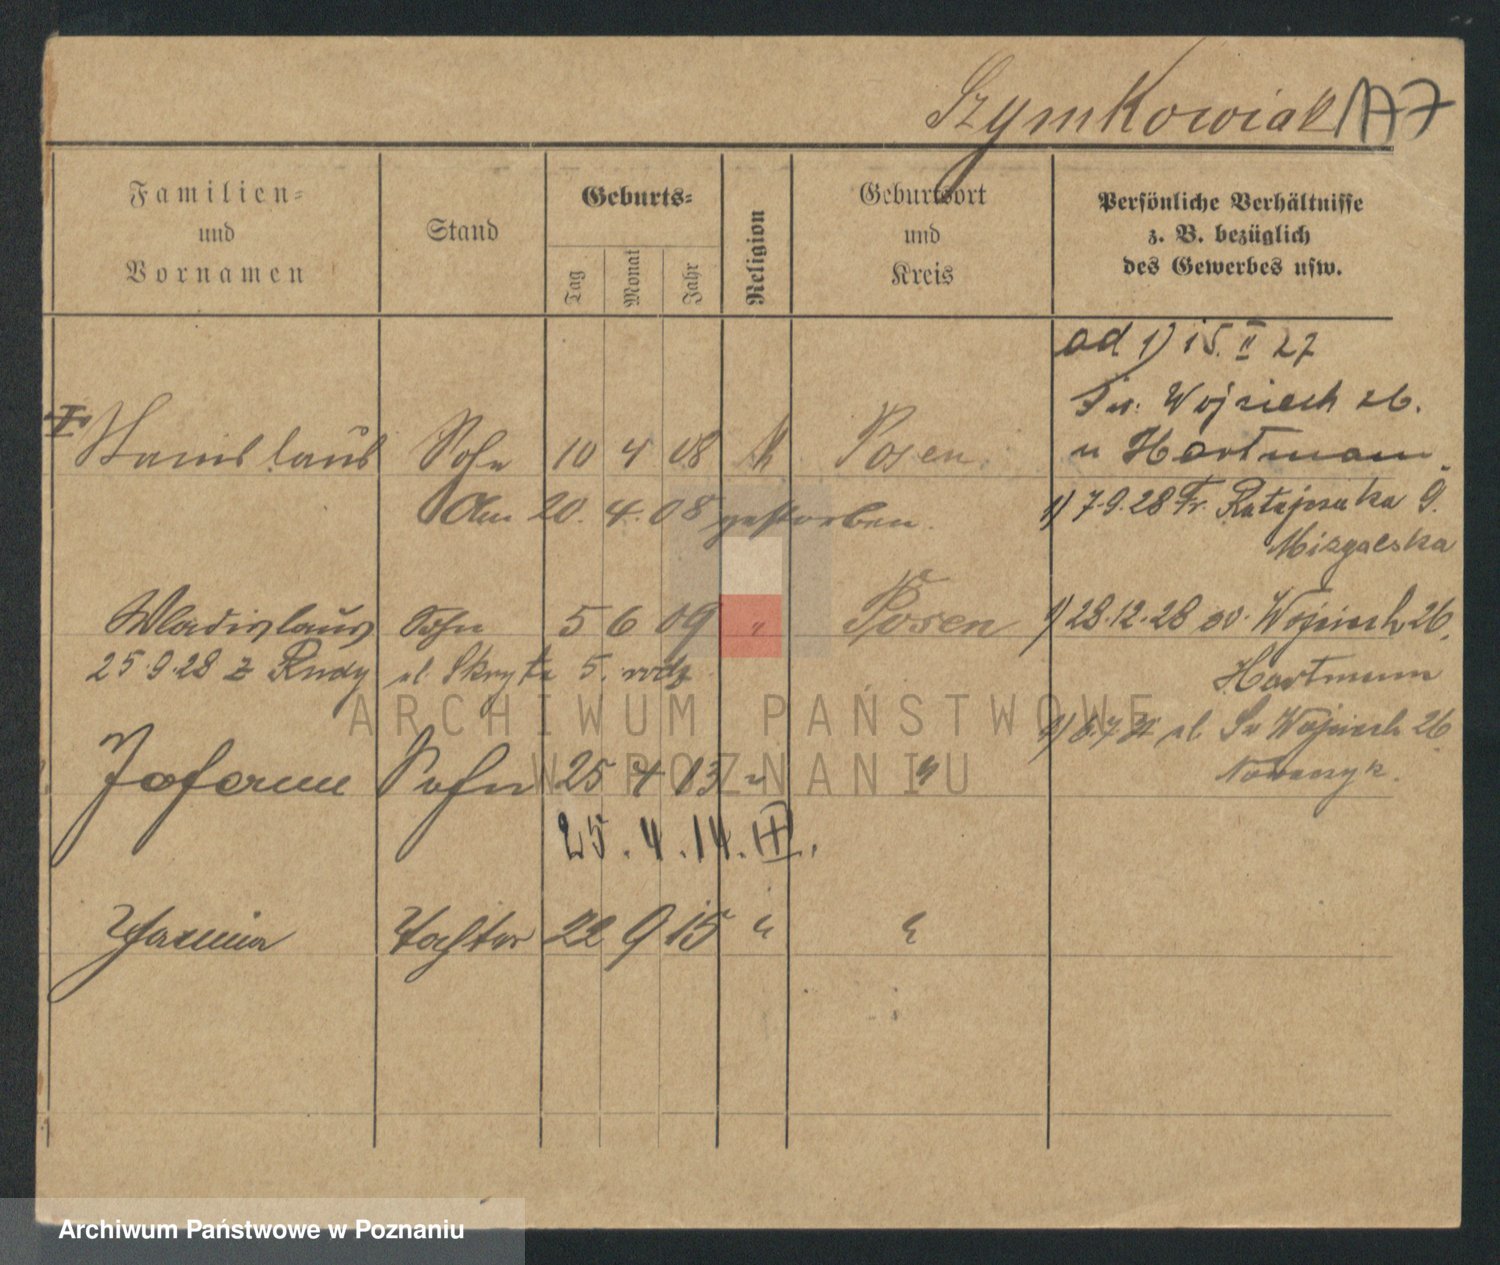 Szymkowiak 147
Familien=
und
Vornamen
Stand
Geburts=
Tag
Monat
Jahr
Religion
Geburtsort
und
Kreis
Persönliche Verhältnisse
z. B. bezüglich
des Gewerbes usw.
ad 1) 15. II 27
Św. Wojciech 26.
u Hartmann
Stanislaus Sohn 10 4 08 k Posen
Am 20. 4. 08 gestorben.
1) 7.9.28 Fr. Ratajczaka 9.
Mizgalska
Wladislaus Sohn 5 6 09 " Posen
1) 28.12.28 Wojciech 26.
25.9.28 z Rudy ul. Skryta 5.
Hartmann
ul. Św Wojciech 26
Nowaczyk.
Johann Sohn 25 4 13 " "
25.4.14.
Tochter 22 9 15 " "
ARCHIWUM PAŃSTWOWE
W POZNANIU
Archiwum Państwowe w Poznaniu